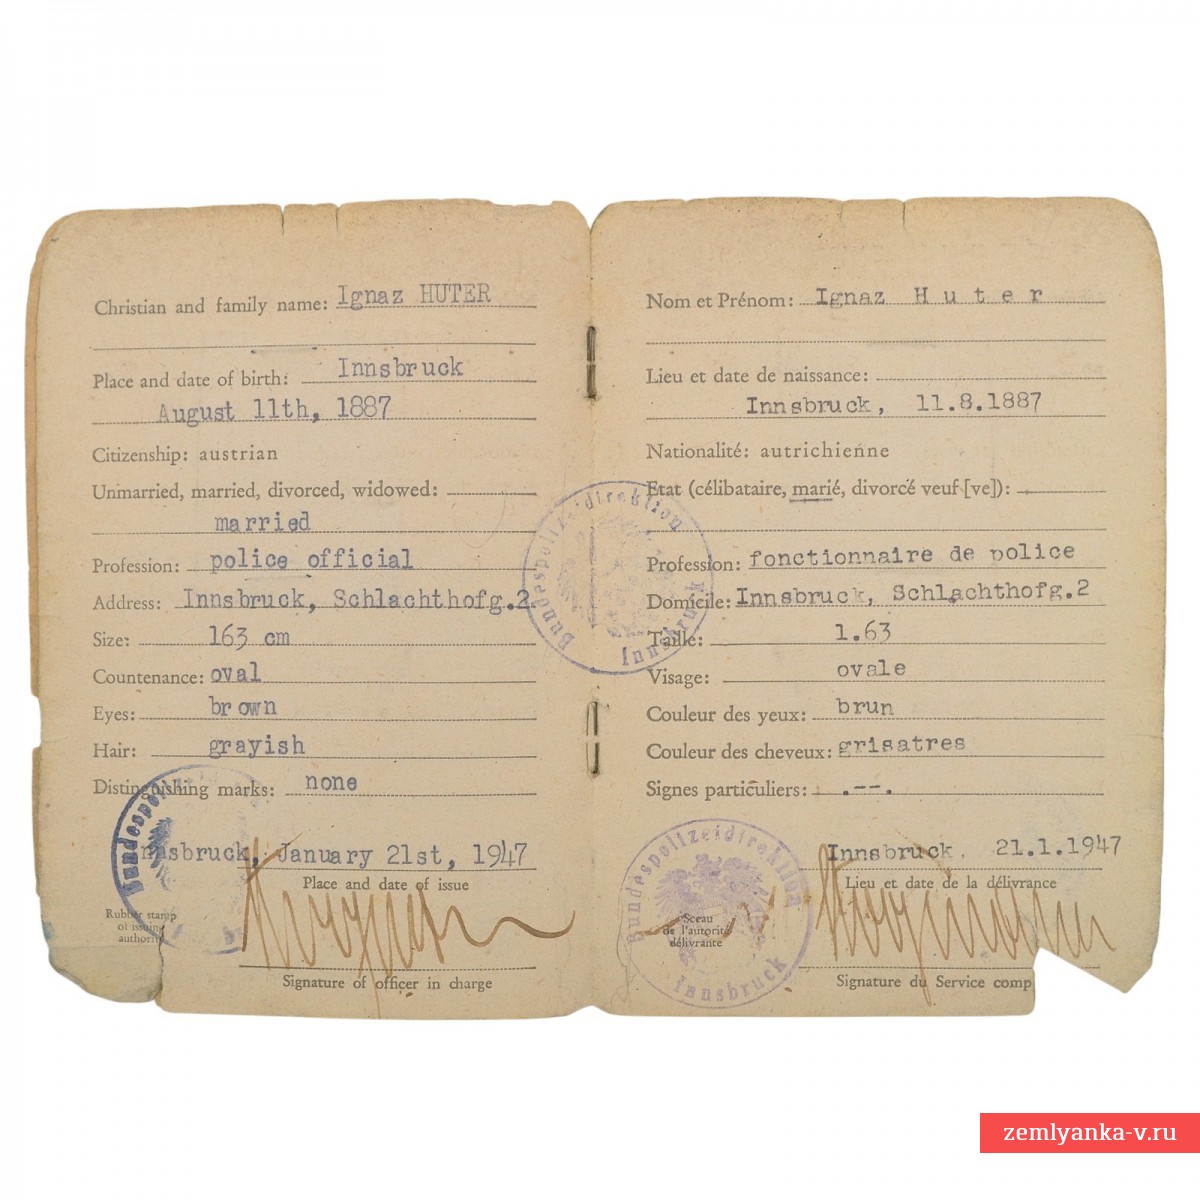 Christian and family name: Ignaz HUTER
Place and date of birth: Innsbruck
August 11th, 1887
Citizenship: austrian
Unmarried, married, divorced, widowed:
married
Profession: police official
Address: Innsbruck, Schlachthofg.2
Size: 163 cm
Countenance: oval
Eyes: brown
Hair: grayish
Distinguishing marks: none
Innsbruck, January 21st, 1947
Place and date of issue
Rubber stamp
of issuing
authority
Signature of officer in charge
Bundespolizeidirektion
Innsbruck
Nom et Prénom: Ignaz Huter
Lieu et date de naissance:
Innsbruck, 11.8.1887
Nationalité: autrichienne
Etat (célibataire, marié, divorcé veuf [ve]):
Profession: fonctionnaire de police
Domicile: Innsbruck, Schlachthofg.2
Taille: 1.63
Visage: ovale
Couleur des yeux: brun
Couleur des cheveux: grisatres
Signes particuliers: .--.
Innsbruck, 21.1.1947
Lieu et date de la délivrance
Sceau
de l'autorité
délivrante
Signature du Service comp
Bundespolizeidirektion
Innsbruck
zemlyanka-v.ru